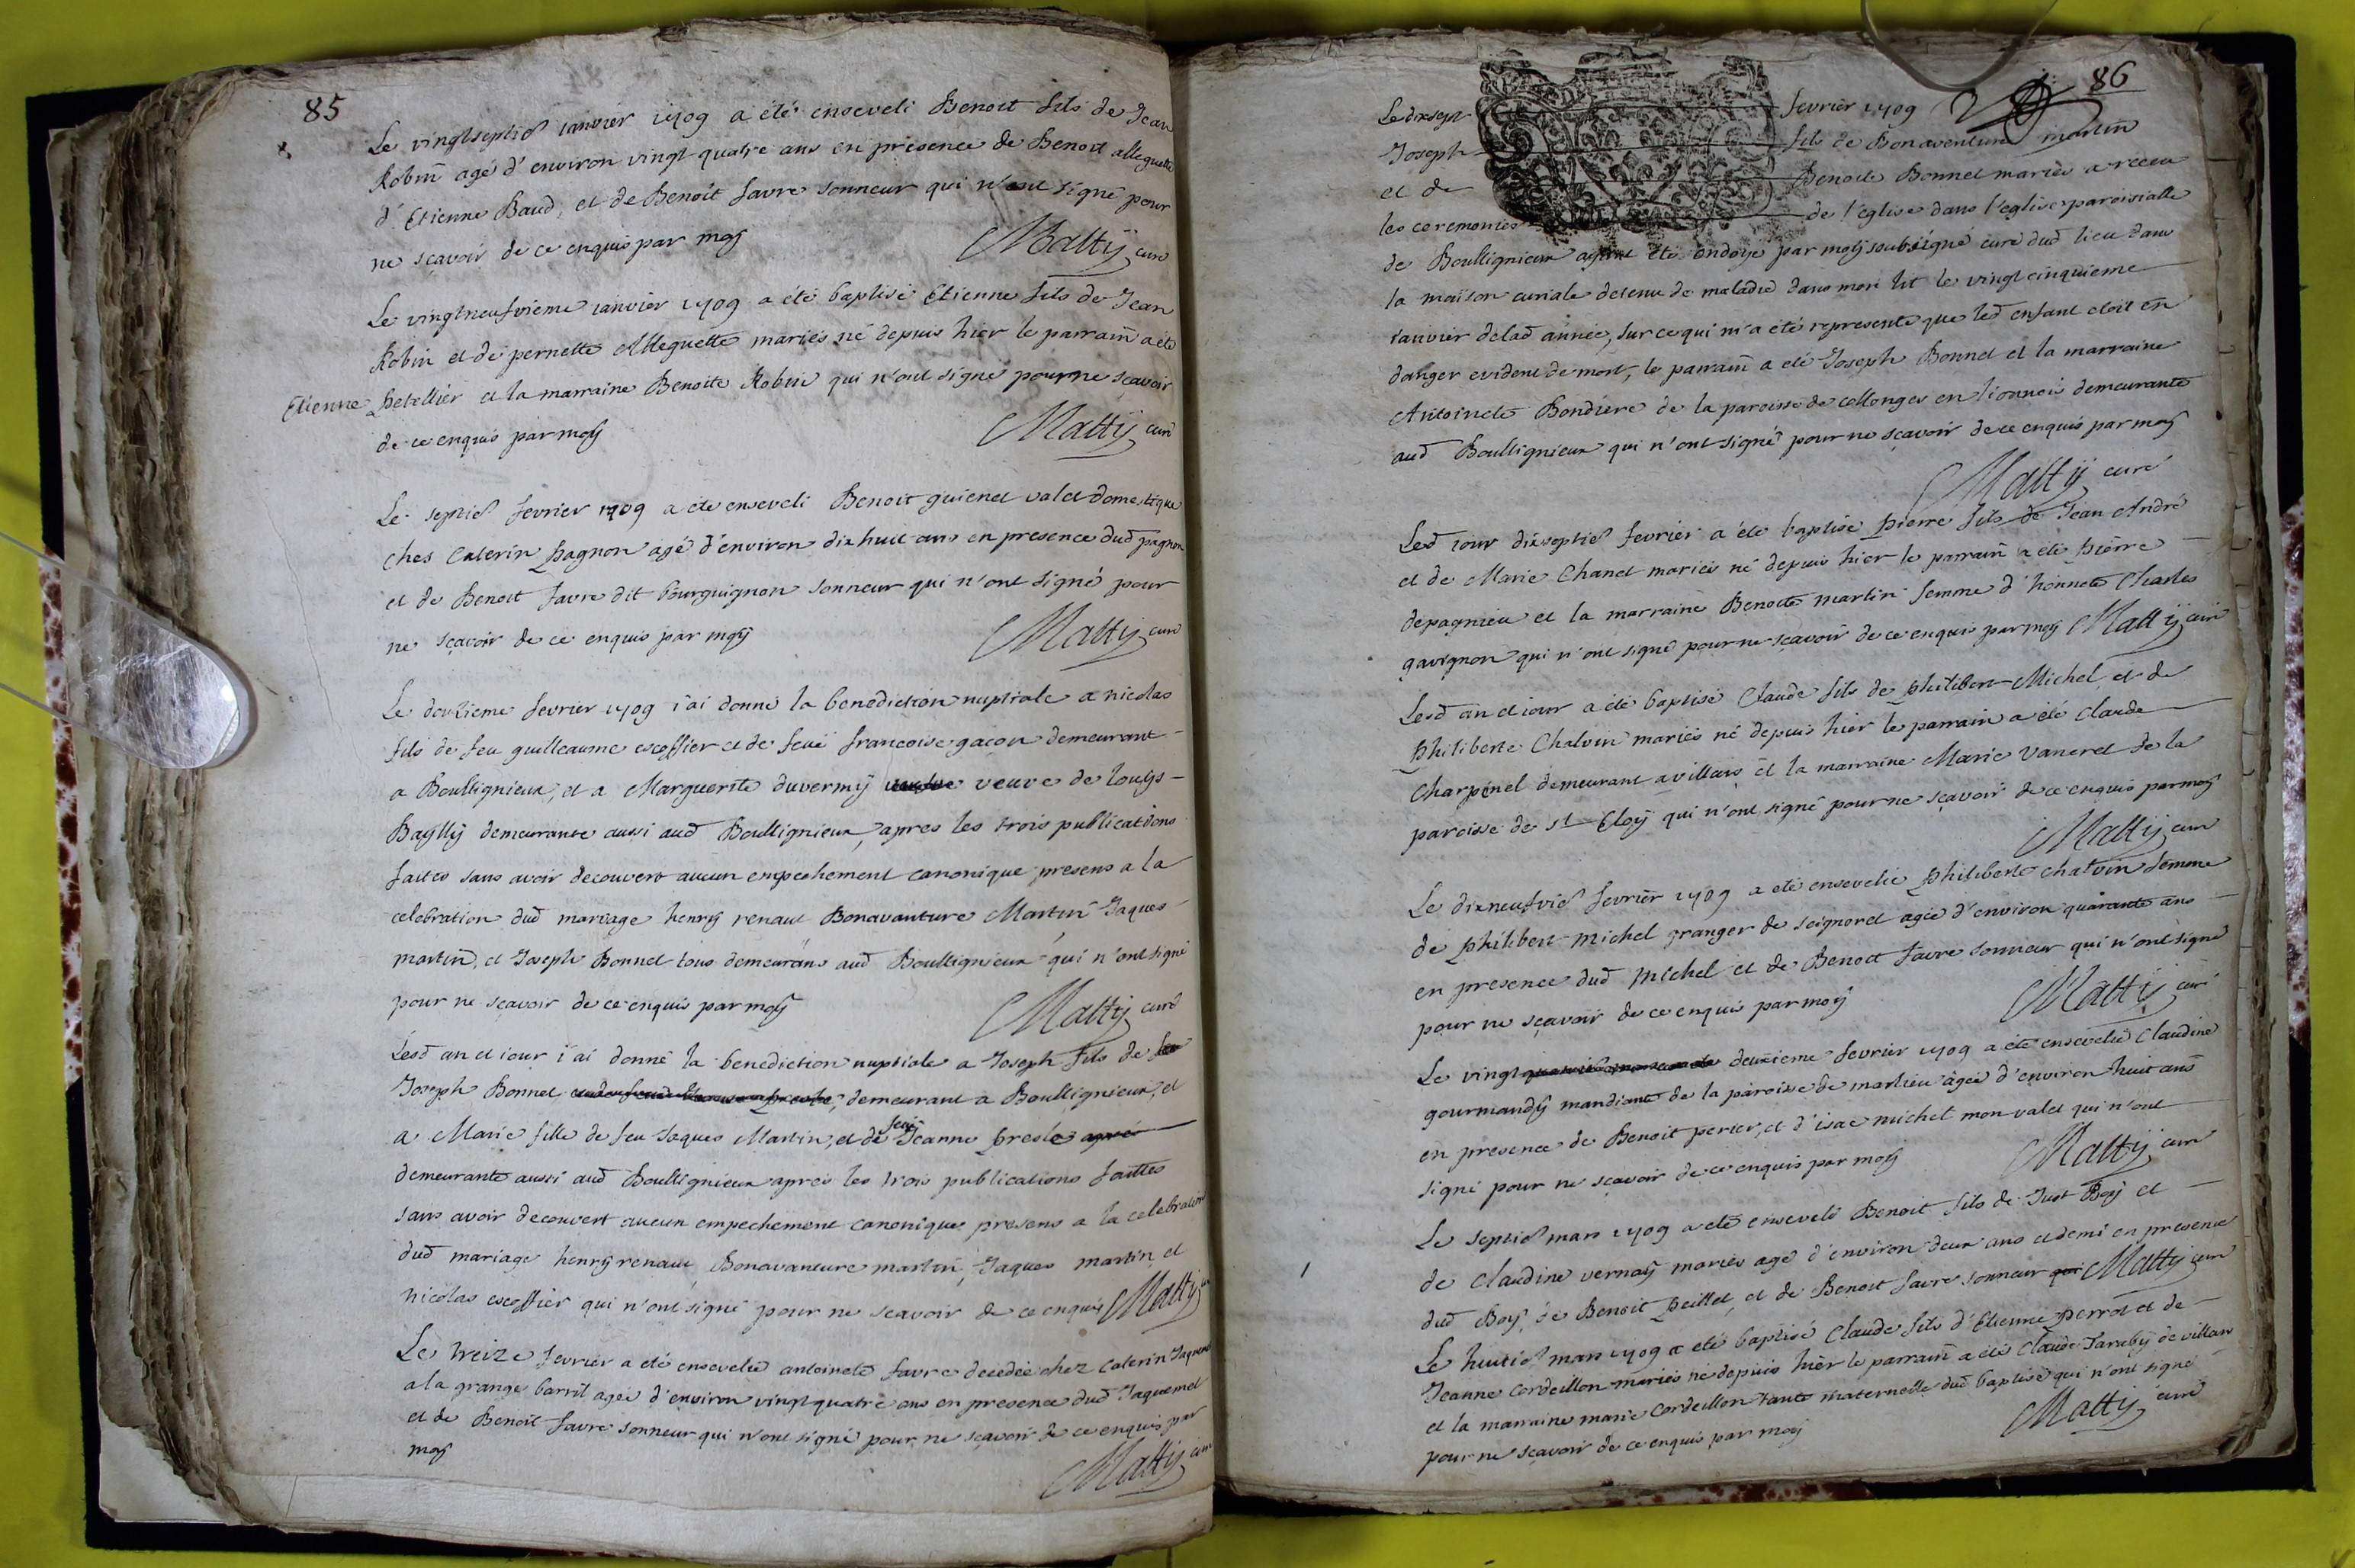 85
Le vingtseptie janvier 1709 a été enseveli Benoit fils de Jean
Robin agé d'environ vingt quatre ans en presence de Benoit alleguette
d'Etienne Baud, et de Benoit favre sonneur qui n'ont signé pour
ne sçavoir de ce enquis par moy Mattÿ curé
Le vingtneufvieme janvier 1709 a été baptisé Etienne fils de Jean
Robin et de pernette Alleguette mariés né depuis hier le parrain a été
Etienne petellier et la marraine Benoite Robin qui n'ont signé pour ne sçavoir
de ce enquis par moy Mattÿ curé
Le septie fevrier 1709 a été enseveli Benoit guienet valet domestique
ches Caterin pagnon agé d'environ dix huit ans en presence dud pagnon
et de Benoit favre dit bourguignon sonneur qui n'ont signé pour
ne sçavoir de ce enquis par moy Mattÿ curé
Le douzieme fevrier 1709 j'ai donné la benediction nuptiale a nicolas
fils de feu guilleaume escoffier et de feuë francoise gaçon demeurant
a Boullignieux, et a Marguerite duvermy veuve de louys
Baylly demeurante aussi aud Boullignieux, apres les trois publications
faites sans avoir decouvert aucun empechement canonique presens a la
celebration dud mariage henry renaut Bonavanture Martin Jaques
martin, et Joseph Bonnet tous demeurans aud Boullignieux qui n'ont signé
pour ne sçavoir de ce enquis par moy Mattÿ curé
Lesd an et jour j'ai donné la benediction nuptiale a Joseph fils de feu
Joseph Bonnet demeurant a Boullignieux, et
a Marie fille de feu Jaques Martin, et de feuë Jeanne presle apres
demeurante aussi aud Boullignieux apres les trois publications faittes
sans avoir decouvert aucun empechement canonique presens a la celebration
dud mariage henry renaut Bonavanture martin, Jaques martin, et
nicolas escoffier qui n'ont signé pour ne scavoir de ce enquis Mattÿ
Le treize fevrier a été ensevelie antoinete favre decedée chez Caterin Jaquemet
a la grange barril agée d'environ vingt quatre ans en presence dud Jaquemet
et de Benoit favre sonneur qui n'ont signé pour ne sçavoir de ce enquis par
moy Mattÿ curé
86
Le dixsept fevrier 1709
Joseph fils de Bonaventure martin
et de Benoite Bonnet mariés a receu
les ceremonies de l'eglise dans l'eglise paroissialle
de Boullignieux ayant été ondoyé par moy soubsigné curé dud lieu dans
la maison curiale detenu de maladie dans mon lit le vingt cinquieme
janvier delad année, sur ce qui m'a été representé que led enfant etoit en
danger evident de mort, le parrain a été Joseph Bonnet et la marraine
Antoinete Bondiere de la paroisse de collonges en lionnois demeurante
aud Boullignieux qui n'ont signé pour ne sçavoir de ce enquis par moy
Mattÿ curé
Led jour dixseptie fevrier a été baptisé pierre fils de Jean André
et de Marie Chanel mariés né depuis hier le parrain a été pierre
depagnieu et la marraine Benoite martin femme d'honnete Charles
gavignon qui n'ont signé pour ne sçavoir de ce enquis par moy Mattÿ curé
Lesd an et jour a été baptisé Claude fils de philibert Michel et de
philiberte Chalvin mariés né depuis hier le parrain a été Claude
Charpenel demeurant a villars et la marraine Marie vaneret de la
paroisse de st Eloy qui n'ont signé pour ne sçavoir de ce enquis par moy
Mattÿ curé
Le dixneufvie fevrier 1709 a été ensevelie philiberte chalvin femme
de philibert michel granger de seignoret agée d'environ quarante ans
en presence dud michel et de Benoit favre sonneur qui n'ont signé
pour ne sçavoir de ce enquis par moy Mattÿ curé
Le vingt deuxieme fevrier 1709 a été ensevelie Claudine
gourmandy mandiante de la paroisse de marlieu agée d'environ huit ans
en presence de Benoit perier, et d'isac michel mon valet qui n'ont
signé pour ne scavoir de ce enquis par moy Mattÿ curé
Le septie mars 1709 a été enseveli Benoit fils de Just Boy et
de Claudine vernay mariés agé d'environ deux ans et demi en presence
dud Boy, de Benoit peillet, et de Benoit favre sonneur qui Mattÿ curé
Le huitie mars 1709 a été baptisé Claude fils d'Etienne perrot et de
Jeanne Cordeillon mariés né depuis hier le parrain a été Claude Taraby de villars
et la marraine marie Cordeillon tante maternelle dud baptisé qui n'ont signé
pour ne sçavoir de ce enquis par moy Mattÿ curé